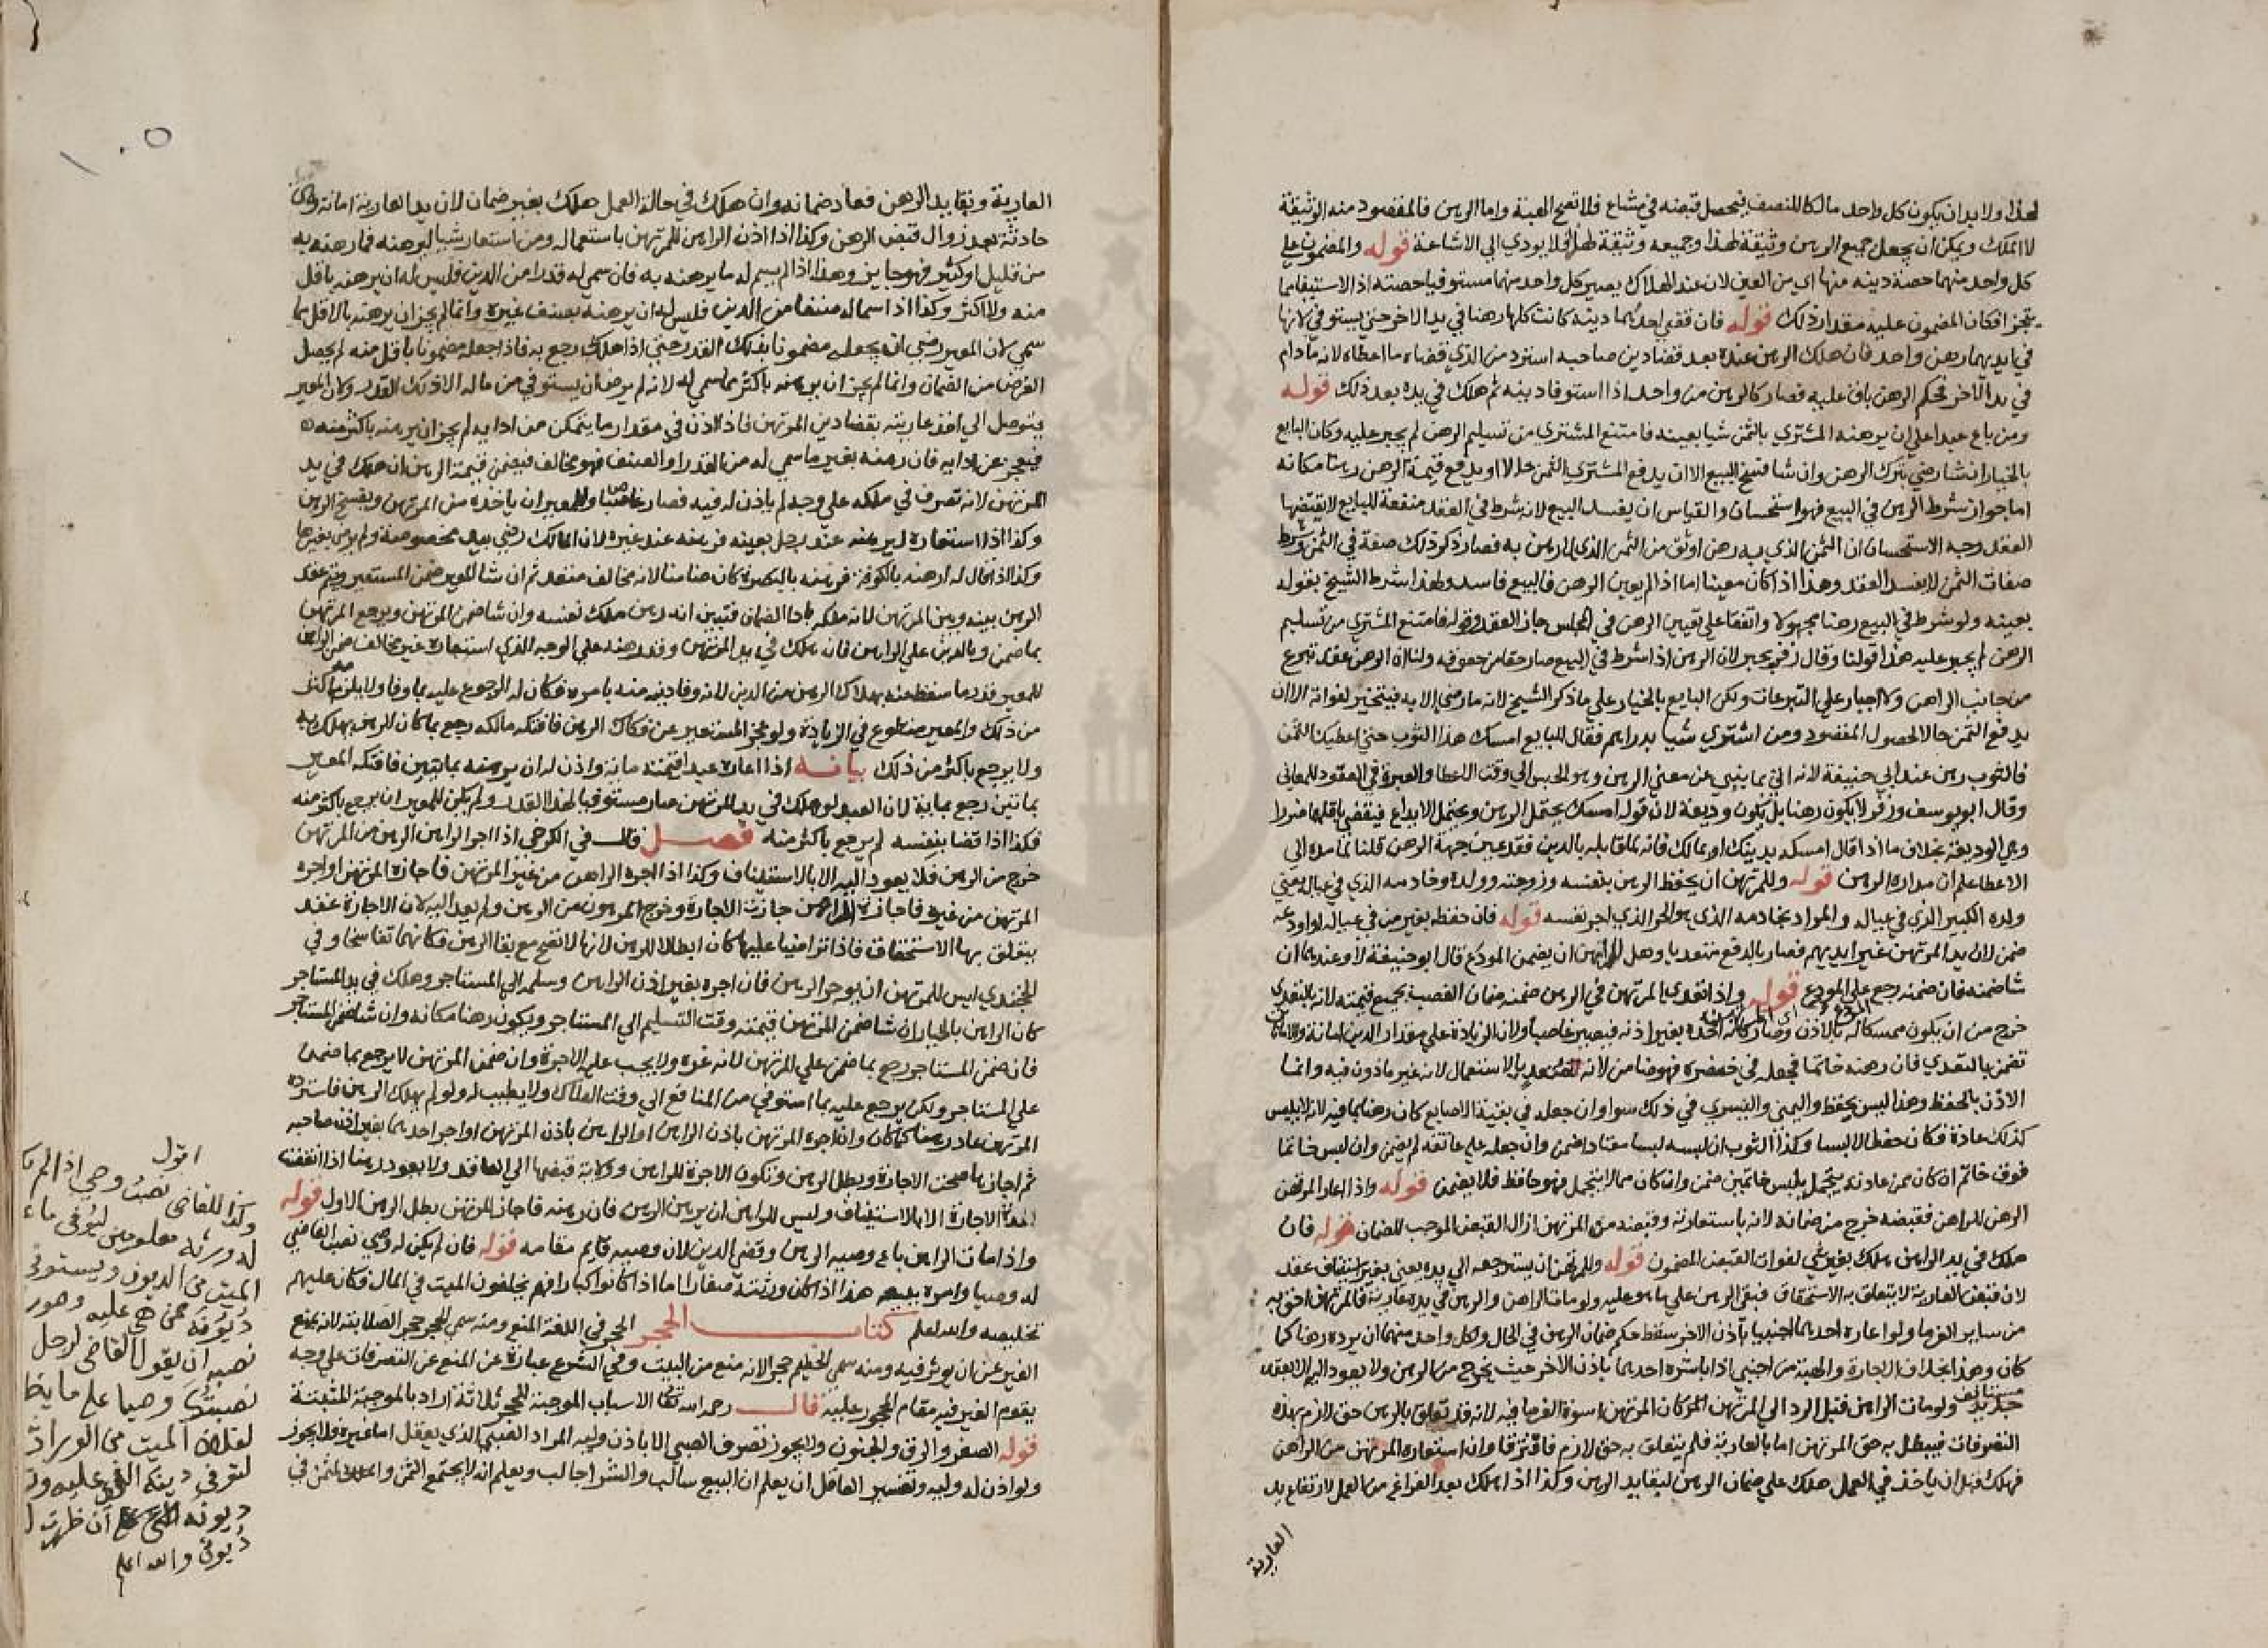 لهذا ولا بد ان يكون كل واحد مالكا للنصف فيحصل قبضه في مشاع فلا تصح الهبة واما الرهن فالمقصود منه الوثيقة
لا الملك ويمكن ان يجعل جميع الرهن وثيقة لهذا وجميعه وثيقة لهذا فلا يودي الي الاشاعة قوله والمضمون علي
كل واحد منهما حصة دينه منها اي من العين لان عند الهلاك يصير كل واحد منهما مستوفيا حصته اذ الاستيفا مما
يتجزا فكان المضمون عليه مقدار ذلك قوله فان قضي احدهما دينه كانت كلها رهنا في يد الاخر حتي يستوفي لانها
في ايديهما رهن واحد فان هلك الرهن عنده بعد قضا دين صاحبه استرد من الذي قضاه ما اعطاه لانه ما دام
في يد الآخر فحكم الرهن باق عليه فصار كالرهن من واحد اذا استوفا دينه ثم هلك في يده بعد ذلك قوله
ومن باع عبدا علي ان يرهنه المشتري بالثمن شيا بعينه فامتنع المشتري من تسليم الرهن لم يجبر عليه وكان البايع
بالخيار ان شا رضي بترك الرهن وان شا فسخ البيع الا ان يدفع المشتري الثمن حالا او يدفع قيمة الرهن رهنا مكانه
اما جواز شرط الرهن في البيع فهو استحسان والقياس ان يفسد البيع لانه شرط في العقد منفعة للبايع لا يقتضيها
العقد وجه الاستحسان ان الثمن الذي به رهن اوثق من الثمن الذي لا رهن به فصار ذكر ذلك صفة في الثمن وشرط
صفات الثمن لا يفسد العقد وهذا اذا كان معينا اما اذا لم يعين الرهن فالبيع فاسد ولهذا شرط الشيخ بقوله
بعينه ولو شرط في البيع رهنا مجهولا واتفقا علي تعيين الرهن في المجلس جاز العقد وقوله فامتنع المشتري من تسليم
الرهن لم يجبر عليه هذا قولنا وقال زفر يجبر لان الرهن اذا شرط في البيع صار حقا من حقوقه ولنا ان الرهن عقد تبرع
من جانب الراهن ولا اجبار علي التبرعات ولكن البايع بالخيار علي ما ذكر الشيخ لانه ما رضي الا به فيتخير لفواته الا ان
يدفع الثمن حالا لحصول المقصود ومن اشتري شيا بدراهم فقال للبايع امسك هذا الثوب حتي اعطيك الثمن
فالثوب رهن عند ابي حنيفة لانه اتي بما ينبي عن معني الرهن وهو الحبس الي وقت الاعطا والعبرة في العقود للمعاني
وقال ابو يوسف وزفر لا يكون رهنا بل يكون وديعة لان قوله امسك يحتمل الرهن ويحتمل الايداع فيقضي باقلهما ضررا
وهي الوديعة بخلاف ما اذا قال امسكه بدينك او بمالك فانه لما قابله بالدين فقد عين جهة الرهن قلنا لما مده الي
الاعطا علم ان مراده الرهن قوله وللمرتهن ان يحفظ الرهن بنفسه وزوجته وولده وخادمه الذي في عياله يعني
ولده الكبير الذي في عياله والمراد بخادمه الذي هو الحر الذي اجر نفسه قوله فان حفظه بغير من في عياله او اودعه
ضمن لان يد المرتهن غير ايديهم فصار بالدفع متعديا وهل للراهن ان يضمن المودع قال ابو حنيفة لا وعندهما ان
شا ضمنه فان ضمنه رجع علي المودع قوله واذا تعدي المرتهن في الرهن ضمنه ضمان الغصب بجميع قيمته لانه بالتعدي
خرج من ان يكون ممسكا له بالاذن وصار كانه اخذه بغير اذنه فيصير غاصبا ولان الزيادة علي مقدار الدين امانة والامانات
تضمن بالتعدي فان رهنه خاتما فجعله في خنصره فهو ضامن لانه متعد بالاستعمال لانه غير ماذون فيه وانما
الاذن بالحفظ وهذا لبس لا حفظ واليمني واليسري في ذلك سوا وان جعله في بقية الاصابع كان رهنا بما فيه لانه لا يلبس
كذلك عادة فكان حفظا لا لبسا وكذا الثوب ان لبسه لبسا معتادا ضمن وان جعله علي عاتقه لم يضمن وان لبس خاتما
فوق خاتم ان كان ممن عادته يتجمل بلبس خاتمين ضمن وان كان ممن لا يتجمل فهو حافظ فلا يضمن قوله واذا اعار المرتهن
الرهن للراهن فقبضه خرج من ضمانه لانه باستعارته وقبضه من المرتهن ازال القبض الموجب للضمان قوله فان
هلك في يد الراهن هلك بغير شي لفوات القبض المضمون قوله وللمرتهن ان يسترجعه الي يده يعني بغير استيناف عقد
لان قبض العارية لا يتعلق به الاستحقاق فبقي الرهن علي ما هو عليه ولو مات الراهن والرهن في يده عارية فالمرتهن احق به
من ساير الغرما ولو اعاره احدهما اجنبيا باذن الاخر سقط حكم ضمان الرهن في الحال ولكل واحد منهما ان يرده رهنا كما
كان وهذا بخلاف الاجارة والهبة من اجنبي اذا باشره احدهما باذن الاخر حيث يخرج من الرهن ولا يعود اليه الا بعقد
جديد مستانف ولو مات الراهن قبل الرد الي المرتهن كان المرتهن اسوة الغرما فيه لانه قد تعلق بالرهن حق لازم بهذه
التصرفات فيبطل به حق المرتهن اما بالعارية فلم يتعلق به حق لازم فافترقا وان استعاره المرتهن من الراهن
فهلك قبل ان ياخذ في العمل هلك علي ضمان الرهن لبقا يد الرهن وكذا اذا هلك بعد الفراغ من العمل لارتفاع يد
العارية
العارية وبقا يد الرهن فعاد ضمانه وان هلك في حالة العمل هلك بغير ضمان لان يد العارية امانة وهي
حادثة بعد زوال قبض الرهن وكذا اذا اذن الراهن للمرتهن باستعماله ومن استعار شيا ليرهنه فما رهنه به
من قليل او كثير فهو جايز وهذا اذا لم يسم له ما يرهنه به فان سمي له قدرا من الدين فليس له ان يرهنه باقل
منه ولا اكثر وكذا اذا سما له صنفا من الدين فليس له ان يرهنه بصنف غيره وانما لم يجز ان يرهنه بالاقل مما
سمي لان المعير رضي ان يجعله مضمونا بذلك القدر حتي اذا هلك رجع به فاذا جعله مضمونا باقل منه لم يحصل
الغرض من الضمان وانما لم يجز ان يرهنه باكثر مما سمي له لانه لم يرض ان يستوفي من ماله الا ذلك القدر وكان المعير
يتوصل الي اخذ عاريته بقضا دين المرتهن فاذا اذن في مقدار ما يتمكن من ادايه لم يجز ان يرهنه باكثر منه
فيعجز عن ادايه فان رهنه بغير ما سمي له من القدر او الصنف فهو مخالف فيضمن قيمة الرهن ان هلك في يد
المرتهن لانه تصرف في ملكه علي وجه لم ياذن له فيه فصار غاصبا وللمعير ان ياخذه من المرتهن ويفسخ الرهن
وكذا اذا استعاره ليرهنه عند رجل بعينه فرهنه عند غيره لان المالك رضي بيد مخصوصة ولم يرض بغيرها
وكذا اذا قال له ارهنه بالكوفة فرهنه بالبصرة كان ضامنا لانه مخالف متعد ثم ان شا المعير ضمن المستعير ويتم عقد
الرهن بينه وبين المرتهن لانه ملكه بادا الضمان فتبين انه رهن ملك نفسه وان شا ضمن المرتهن ويرجع المرتهن
بما ضمن وبالدين علي الراهن فان هلك في يد المرتهن وقد رهنه علي الوجه الذي استعاره غير مخالف ضمن الراهن
للمعير قدر ما سقط عنه بهلاك الرهن من الدين لانه وفا دينه منه بامره فكان له الرجوع عليه بما وفا ولا يلزمه اكثر
من ذلك والمعير متطوع في الزيادة ولو عجز المستعير عن فكاك الرهن فافتكه مالكه رجع بما كان الرهن يهلك به
ولا يرجع باكثر من ذلك بيانه اذا اعاره عبدا قيمته ماية واذن له ان يرهنه بمايتين فافتكه المعير
بمايتين رجع بماية لان العبد لو هلك في يد المرتهن صار مستوفيا لهذا القدر ولم يكن للمعير ان يرجع باكثر منه
فكذا اذا قضا بنفسه لم يرجع باكثر منه فصل قال في الكرخي اذا اجر الراهن الرهن من المرتهن
خرج من الرهن فلا يعود اليه الا بالاستيناف وكذا اذا اجره الراهن من غير المرتهن فاجازه المرتهن او اجره
المرتهن من غيره فاجازه الراهن جازت الاجارة وخرج المرهون من الرهن ولم يعد اليه لان الاجارة عقد
يتعلق بها الاستحقاق فاذا تراضيا عليها كان ابطالا للرهن لانها لا تصح مع بقا الرهن فكانهما تفاسخا وفي
الخجندي ليس للمرتهن ان يوجر الرهن فان اجره بغير اذن الراهن وسلمه الي المستاجر وهلك في يد المستاجر
كان الراهن بالخيار ان شا ضمن المرتهن قيمته وقت التسليم الي المستاجر ويكون رهنا مكانه وان شا ضمن المستاجر
فان ضمن المستاجر رجع بما ضمن علي المرتهن لانه غره ولا يجب عليه الاجرة وان ضمن المرتهن لا يرجع بما ضمن
علي المستاجر ولكن يرجع عليه بما استوفي من المنافع الي وقت الهلاك ولا يطيب له ولو لم يهلك الرهن فاسترده
المرتهن عاد رهنا كما كان وان اجره المرتهن باذن الراهن او الراهن باذن المرتهن او اجر احدهما بغير اذن صاحبه
ثم اجاز ها صحت الاجارة وبطل الرهن وتكون الاجرة للراهن وولاية قبضها الي العاقد ولا يعود رهنا اذا انقضت
مدة الاجارة الا بالاستيناف وليس للراهن ان يرهن الرهن فان رهنه فاجاز المرتهن بطل الرهن الاول قوله
واذا مات الراهن باع وصيه الرهن وقضي الدين لان وصيه قايم مقامه قوله فان لم يكن له وصي نصب القاضي
له وصيا وامره ببيعه هذا اذا كان ورثته صغارا اما اذا كانوا كبارا فهم يخلفون الميت في المال فكان عليهم
تخليصه والله اعلم كتاب الحجر الحجر في اللغة المنع ومنه سمي الحجر حجر الصلابته لانه يمنع
الغير عن ان يوثر فيه ومنه سمي الحطيم حجرا لانه منع من البيت وفي الشرع عبارة عن المنع عن التصرفات علي وجه
يقوم الغير فيه مقام المحجور عليه قال رحمه الله تعالي الاسباب الموجبة للحجر ثلاثة اراد بالموجبة المثبتة
قوله الصغر والرق والجنون ولا يجوز تصرف الصبي الا باذن وليه المراد الصبي الذي يعقل اما غيره فلا يجوز
ولو اذن له وليه وتفسير العاقل ان يعلم ان البيع سالب والشرا جالب ويعلم انه لا يجتمع الثمن والمثمن في
اقول
وكذا للقاضي نصب وصي اذا لم يك
له ورثه معلومين ليوفي ما ع
الميت من الديون ويستوفي
ديونه ممن هي عليه وصور
نصبه ان يقول القاضي لرجل
نصبتك وصيا علي ما يخا
لفلان الميت من الوراث
لتوفي دينه الذي عليه و
ديونه ان ظهرت ا
ديون والله اعلم
١٠٥